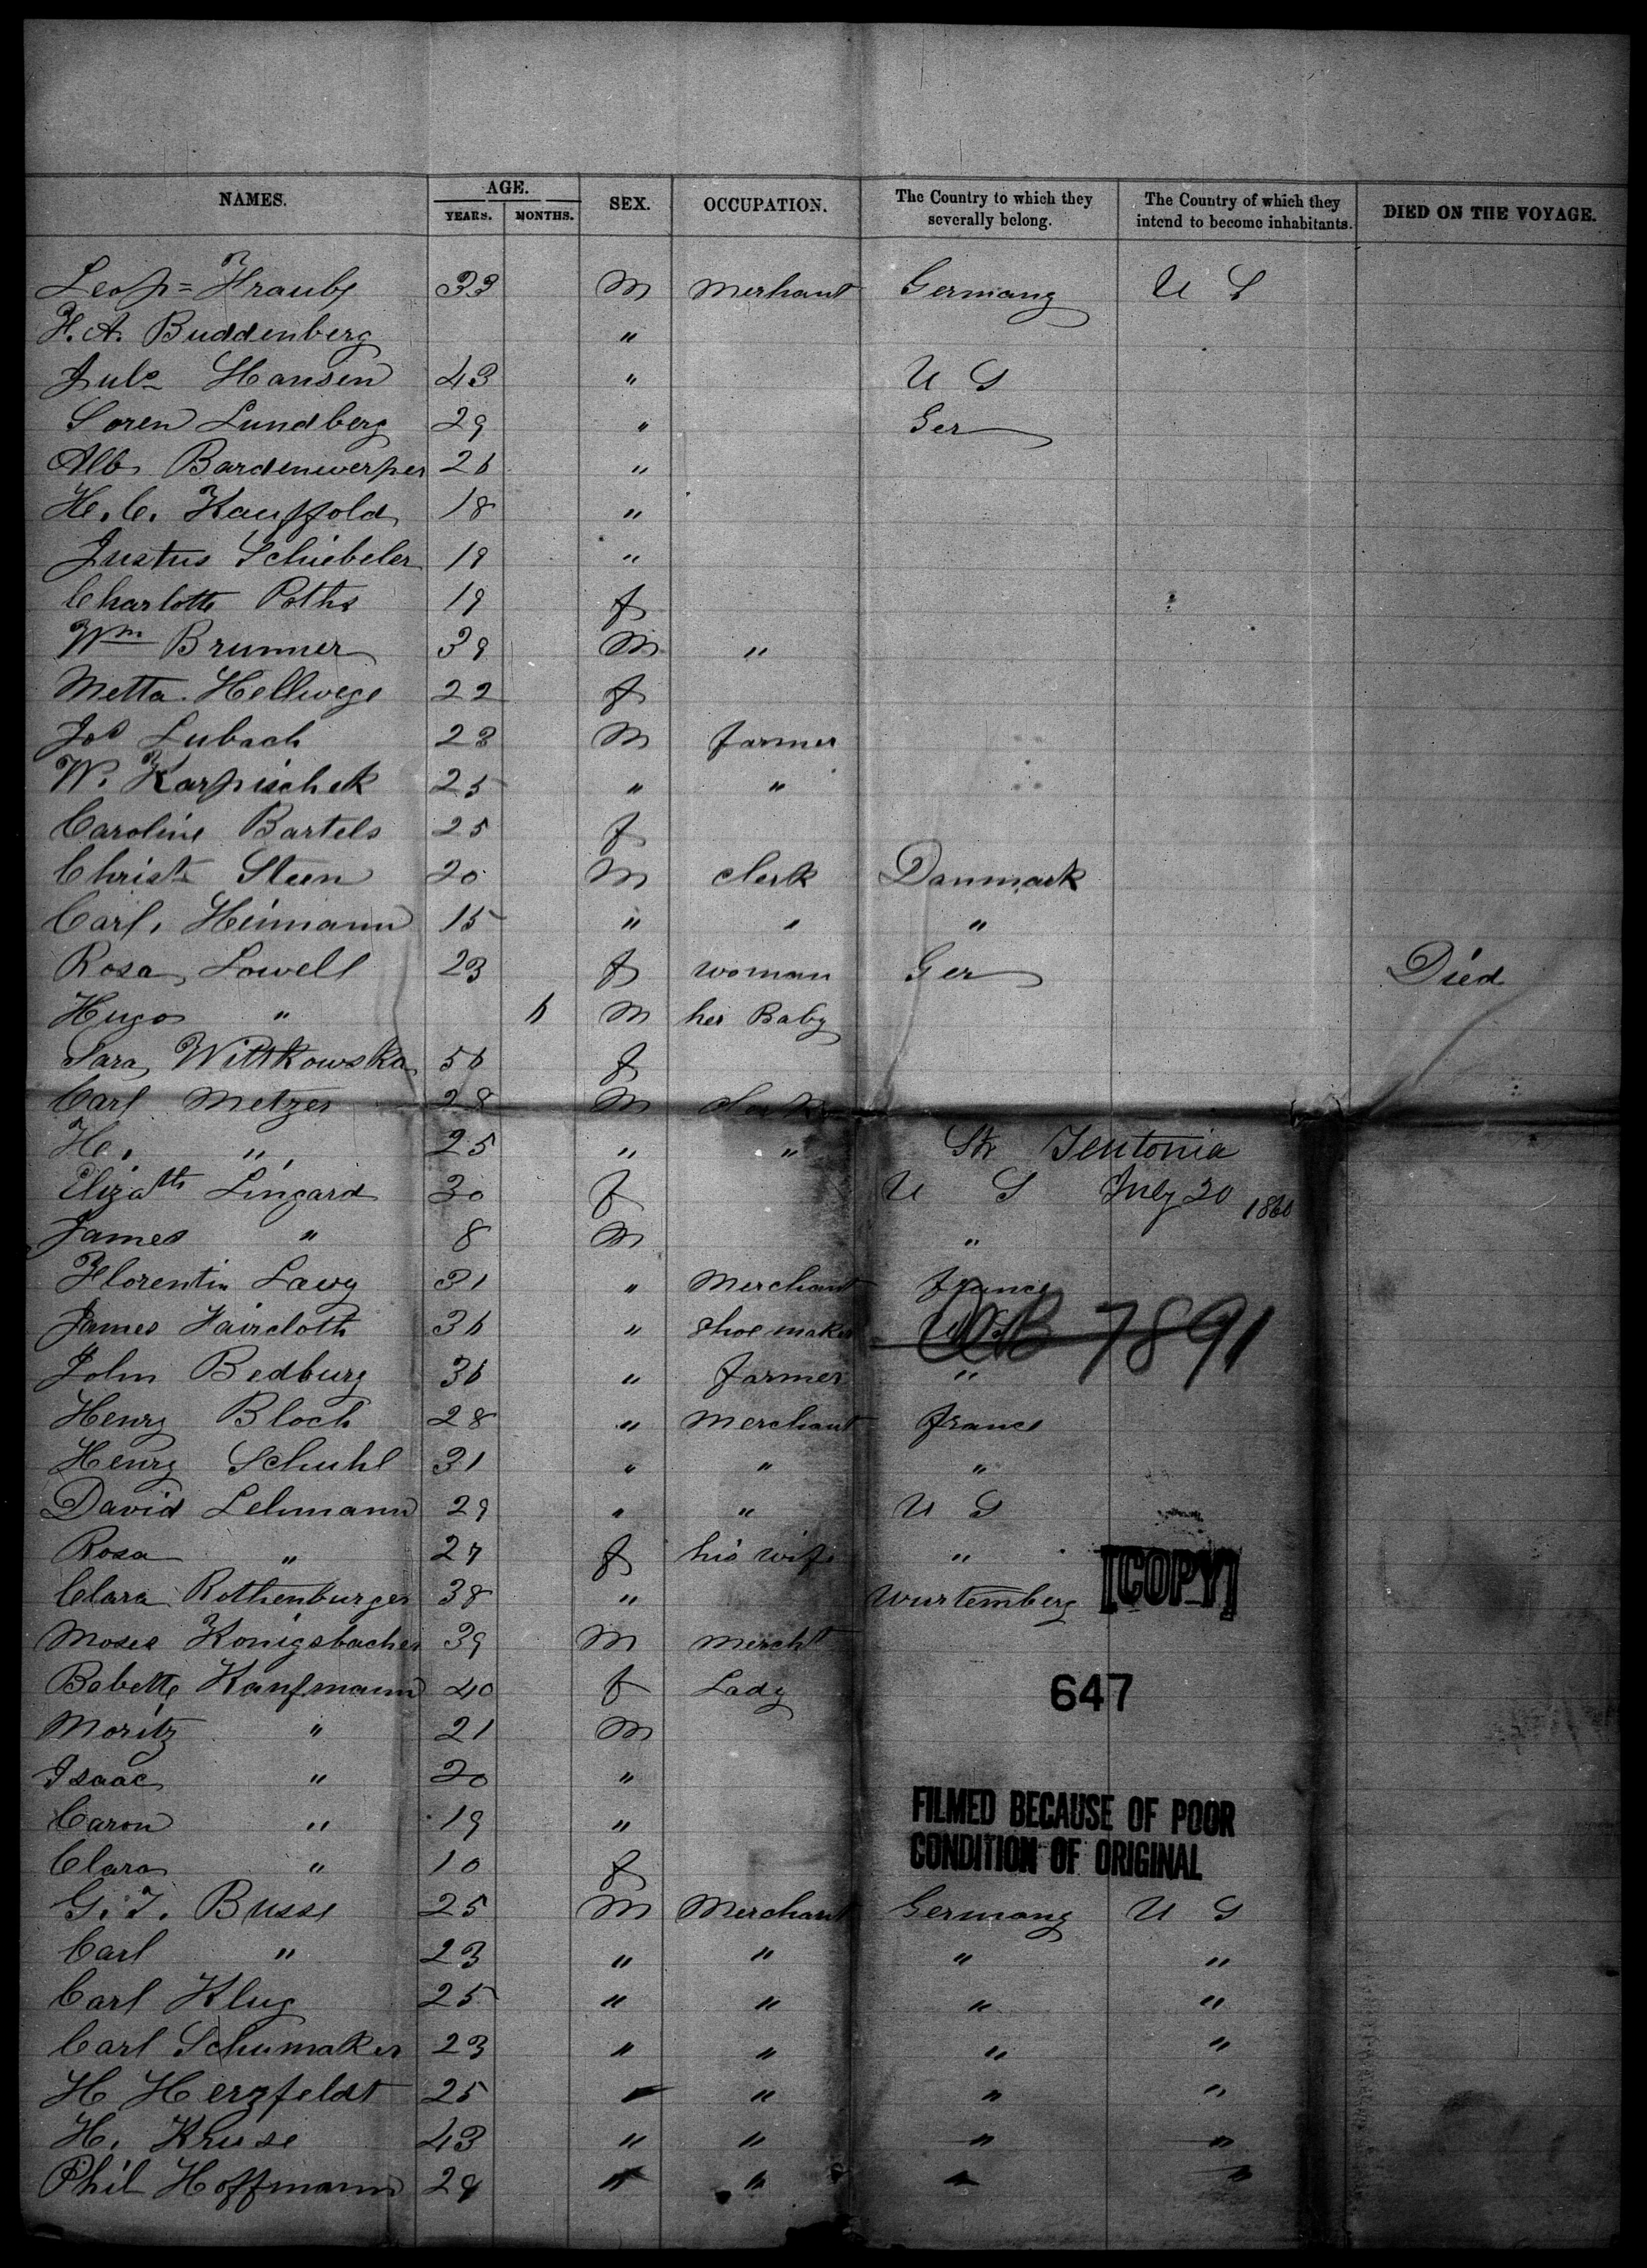 NAMES. AGE. SEX. OCCUPATION. The Country to which they severally belong. The Country of which they intend to become inhabitants. DIED ON THE VOYAGE.
YEARS. MONTHS.
Leop= 33 M Merhant Germany U S
F. A. Buddenberg "
Juls Hansen 43 " U S
Soren Lundberg 29 " Ger
Alb Bardenwerper 26 "
H. C. Kauffold 18 "
Justus Schiebeler 19 "
Charlotte Poths 19 f
Wm Brunner 39 M "
Metta Hellwege 22 f
Jos Lubach 23 M farmer
W. Karpischek 25 " "
Caroline Bartels 25 f
Christ Steen 20 M clerk Danmark
Carl, Heimann 15 " " "
Rosa Lowell 23 f woman Ger Died
Hugo " 6 M her Baby
Sara Wittkowska 56 f
Carl Metzer 28 M clerk
He. " 25 " " Str Teutonia
Elizath Lingard 30 f U S July 20 1860
James " 8 M "
Florentin Lawy 31 " Merchant france
James Faircloth 36 " Shoe maker 7891
John Bedburg 36 " farmer "
Henry Bloch 28 " Merchant france
Henry Schuhl 31 " " "
David Lehmann 29 " " U S
Rosa " 27 f his wife "
Clara Rothenburger 38 " Wurtemberg [COPY]
Moses Konigsbacher 39 M mercht
Babette Kaufmann 40 f Lady 647
Moritz " 21 M
Isaac " 20 "
Caron " 19 " FILMED BECAUSE OF POOR
Clara " 10 f CONDITION OF ORIGINAL
G. F. Busse 25 M Merchant Germany U S
Carl " 23 " " " "
Carl Klug 25 " " " "
Carl Schumaker 23 " " " "
H Herzfeldt 25 " " " "
H. Kruse 43 " " " "
Phil Hoffmann 29 " " " "